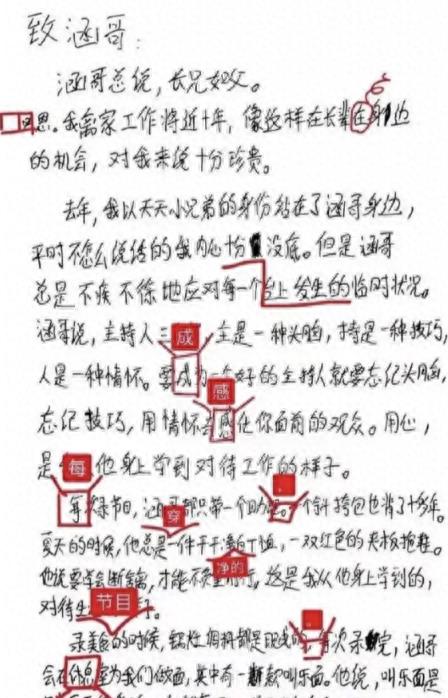 致涵哥:
涵哥总说,长兄如父。
思。我离家工作将近十年,像这样在长辈在身边
的机会,对我来说十分珍贵。
去年,我以天天小兄弟的身份站在了涵哥身边,
平时不怎么说话的我内心十分没底。但是涵哥
总是不疾不徐地应对每一个台上发生的临时状况。
涵哥说,主持人三 成 ,主是一种头脑,持是一种技巧,
人是一种情怀。要成为一个好的主持人就要忘记头脑,
感
忘记技巧,用情怀去感化你面前的观众。用心,
是 每 他身上学到对待工作的样子。
每次录节目,涵哥都只带一个助理。一个斜挎包也背了十多年。
穿
夏天的时候,他总是一件干干净的T恤,一双红色的夹板拖鞋。
净的
他说要学会断 ,才能不 前行,这是我从他身上学到的,
节目
对待生
录美食的时候,锅灶相料都是现 。每次录完,涵哥
会在休息室为我们做面,其中有一款叫乐面。他说,叫乐面是